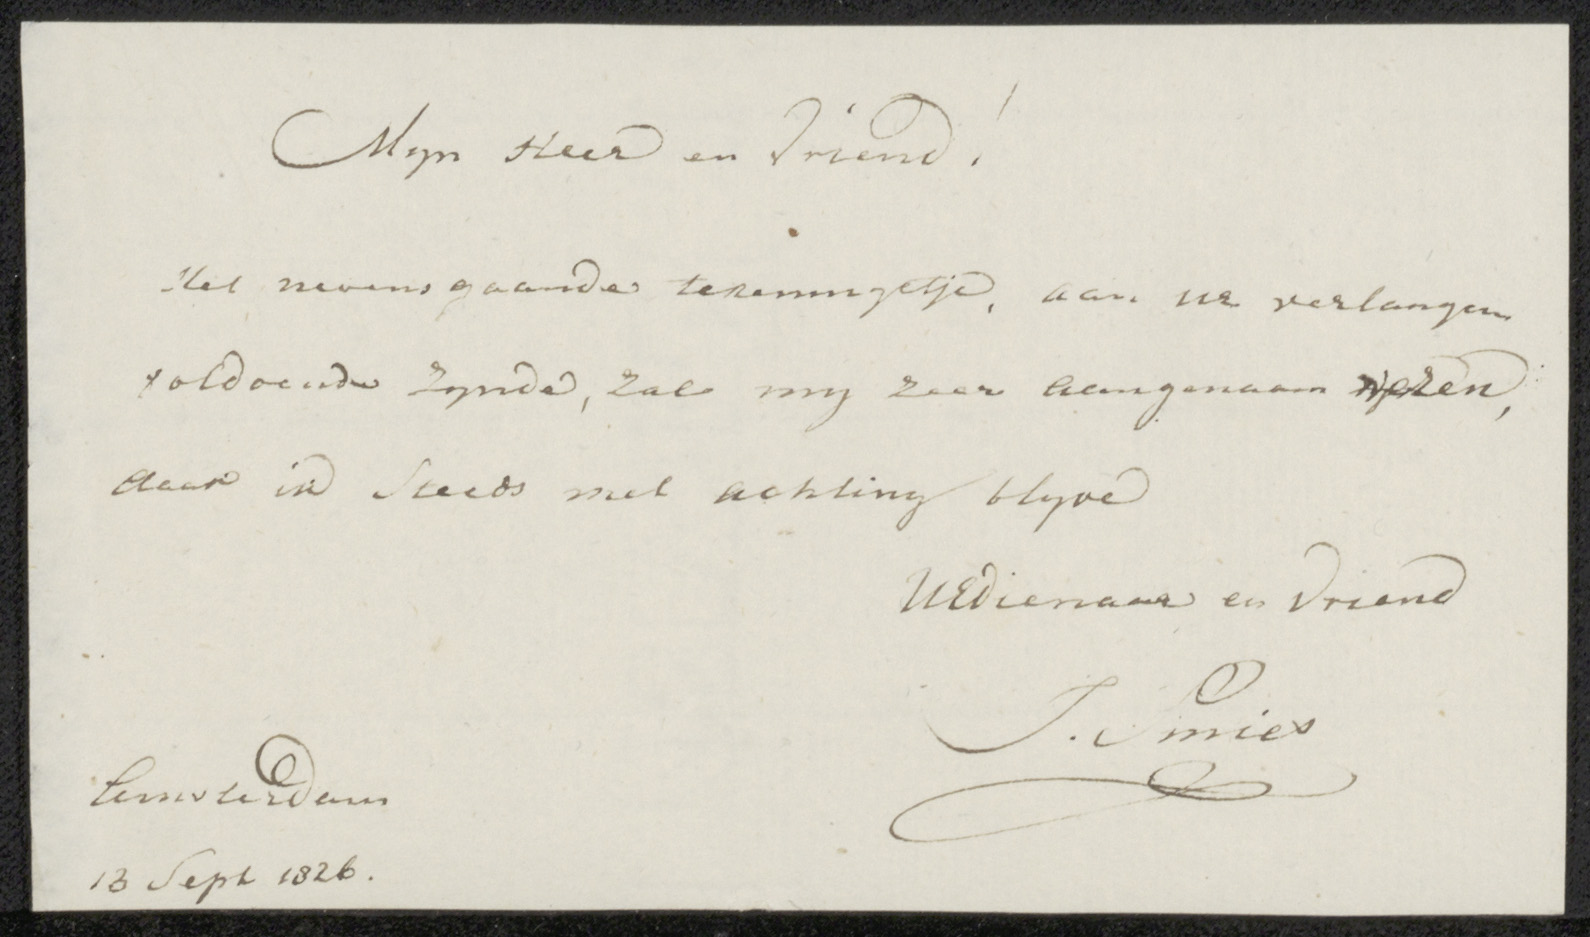 Myn Heer en Vriend!
Het nevensgaande tekeningetje, aan UE verlangen
voldoende zynde, zal my zeer aangenaam wezen,
daar ik steeds met achting blyve
UEDienaar en Vriend
J. Smies
Amsterdam
13 Sept 1826.